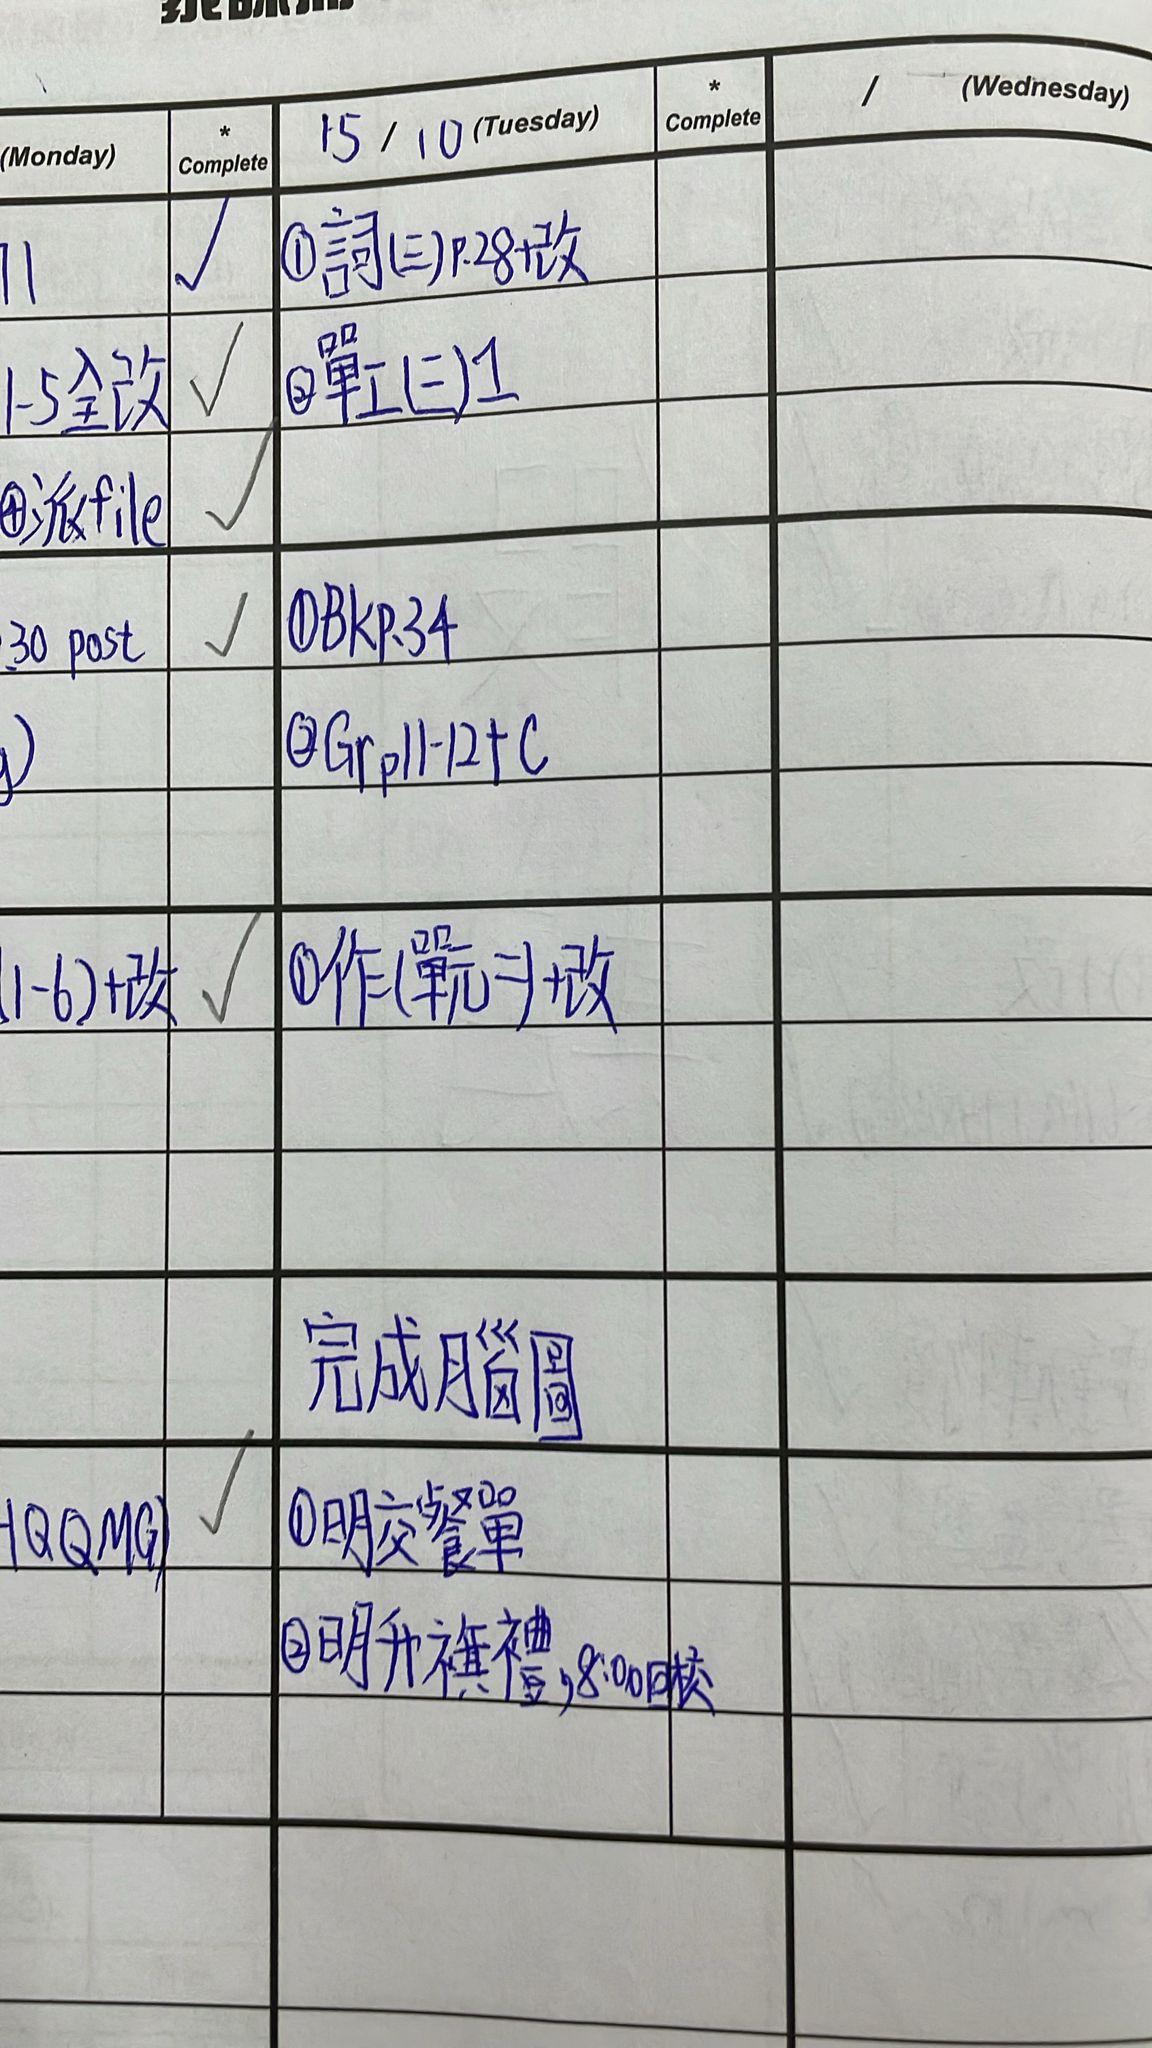 (Monday)
*
Complete
15 / 10 (Tuesday)
*
Complete
/ (Wednesday)
11
①詞(三)P.28+改
1-5全改
②單工(三)1
④派file
30 post
①BKP.34
②Grp11-12+C
(1-6)+改
①作(單元二)+改
完成腦圖
HQQMG)
①明交餐單
②明升旗禮,8:00回校